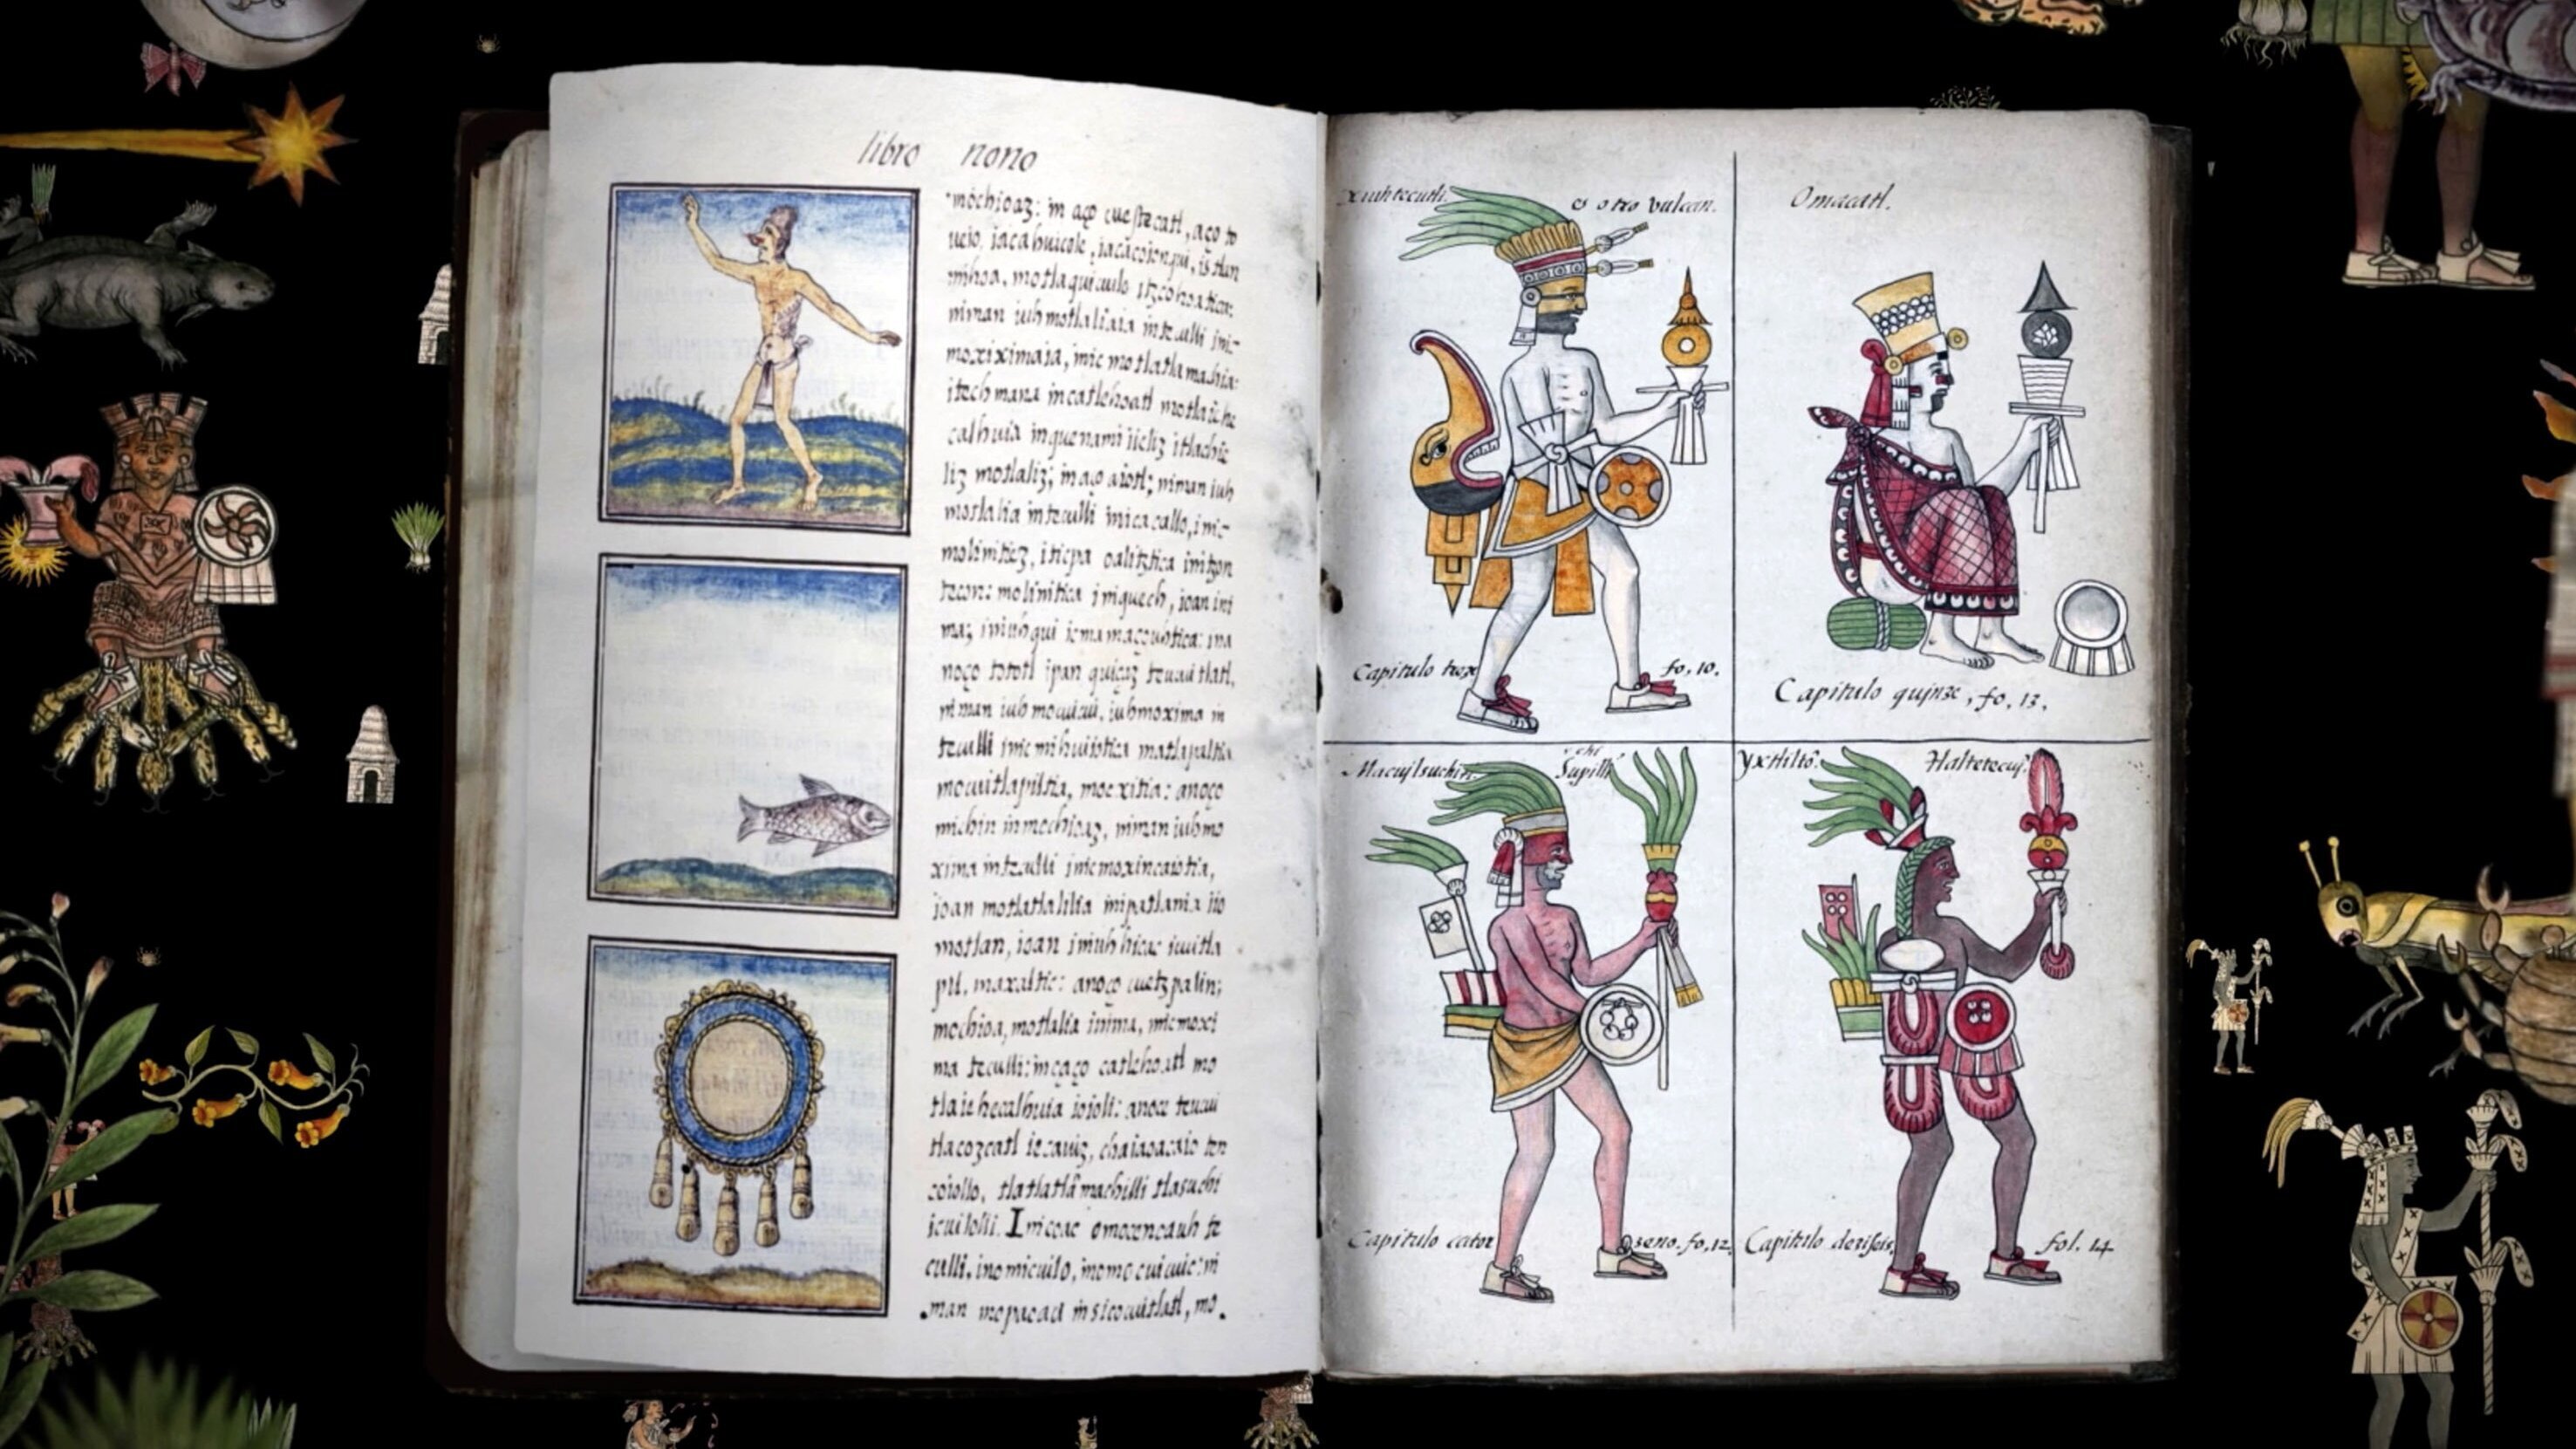 libro nono
mochioaz: in aço cuextecatl, aço to
ueio, iacahuicole, iacacoionqui, is tlan
minoa, motlaquicuilo itzcohoatica:
niman iuh motlaliaia in teculli inic
moxiximaia, inic motlatlamachia:
itech mana in catlehoatl motlaiehe
calhuia in quenami iieliz itlachie
liz motlaliz; in aço aiotl; niman iuh
motlalia in teculli inicacallo, inic
moliniticz, iticpa oalitztica initzon
tecon: molinitica iniquech, ioan ini
ma; iniuhqui icmamaçouhtica: ina
noço tototl ipan quiçaz teucuitlatl,
niman iuh mocuicui, iuhmoxima in
teculli inic mihuiiotica matlapaltia
mocuitlapiltia, moexitia: anoço
michin in mochioaz, niman iuhmo
xima in teculli inic moxincaiotia,
ioan motlatlalilia inipatlania iio
motlan, ioan iniuh hicac icuitla
pil. maxaltic: anoço cuetzpalin;
mochioa, motlalia inima, inic moxi
ma teculli: in çaço catlehoatl mo
tlaiehecalhuia ioioli: anoce teucui
tlacozcatl iecauiz, chaiaoacaio ten
coiollo, tlatlatlamachilli tlasuchi
icuilolli. Inicoac omocencauh te
culli, inomicuilo, inomocuicuic: ni
man mopaoaci in sicocuitlatl, mo.
Xiuhtecutli. es otro vulcan.
Omacatl.
Capitulo treze fo, 10.
Capitulo quinze, fo. 13.
Macuilsuchitl
Yxtlilto. Tlaltetecuj.
Capitulo cator zeno. fo, 12.
Capitulo deziseis, fol. 14